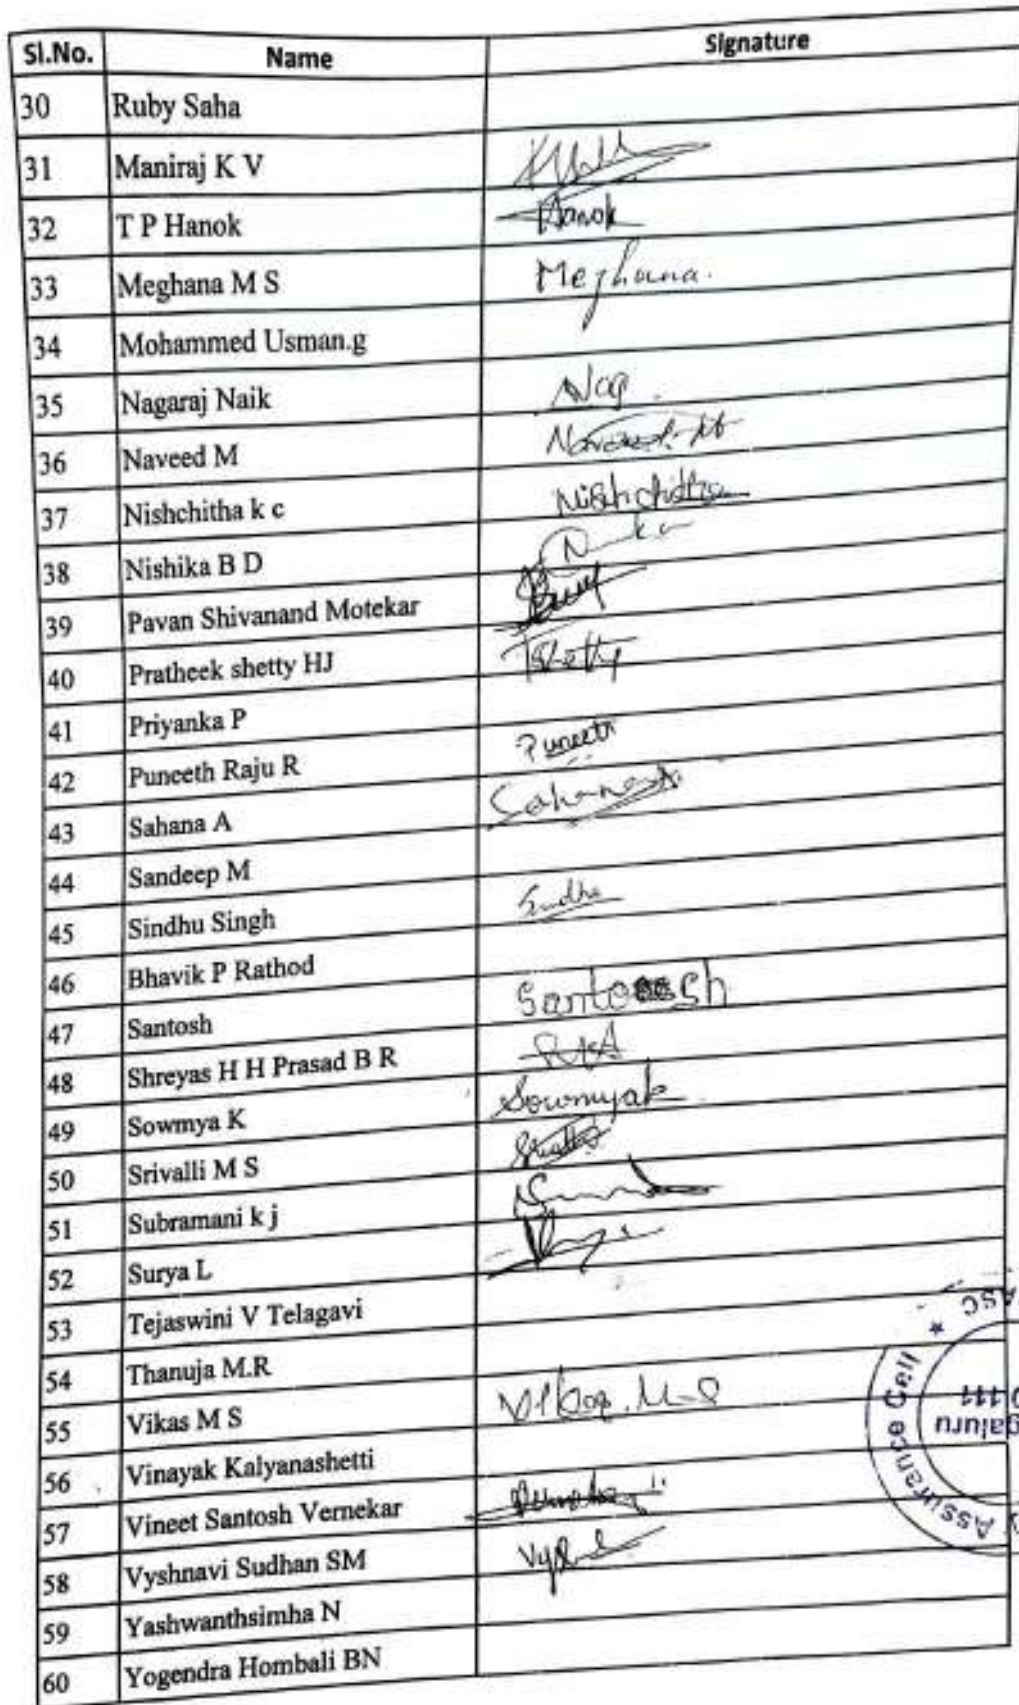 Sl.No. Name Signature
30 Ruby Saha
31 Maniraj K V
32 T P Hanok Hanok
33 Meghana M S Meghana.
34 Mohammed Usman.g
35 Nagaraj Naik Nag.
36 Naveed M Naveed.M
37 Nishchitha k c Nishchitha
38 Nishika B D
39 Pavan Shivanand Motekar
40 Pratheek shetty HJ Shetty
41 Priyanka P
42 Puneeth Raju R Puneeth
43 Sahana A Sahana
44 Sandeep M
45 Sindhu Singh Sindhu
46 Bhavik P Rathod
47 Santosh Santosh
48 Shreyas H H Prasad B R
49 Sowmya K Sowmyak
50 Srivalli M S
51 Subramani k j
52 Surya L
53 Tejaswini V Telagavi
54 Thanuja M.R
55 Vikas M S Vikas.M.S
56 Vinayak Kalyanashetti
57 Vineet Santosh Vernekar
58 Vyshnavi Sudhan SM
59 Yashwanthsimha N
60 Yogendra Hombali BN
Assurance Cell ★ ASC
galuru
111